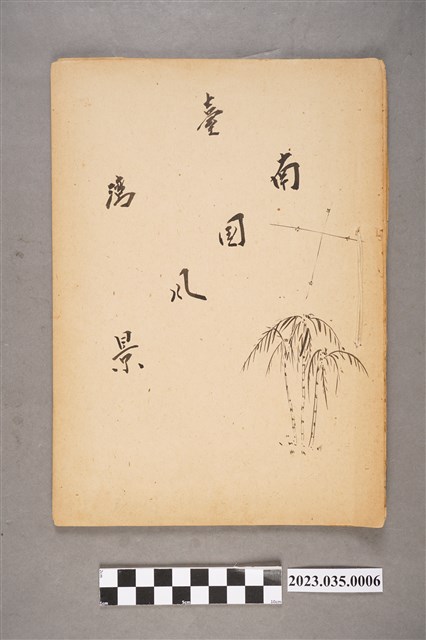 臺灣
南国風景
2023.035.0006